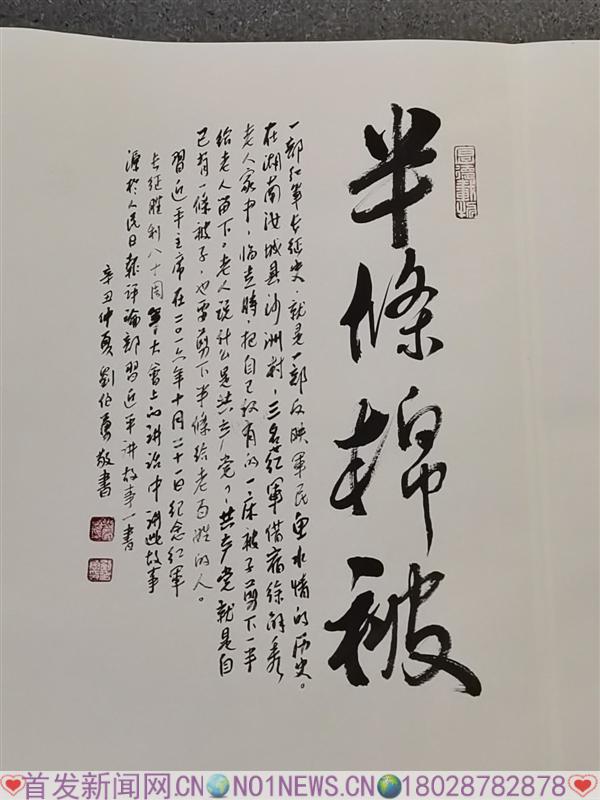 厚德載物
半條棉被
一部红军长征史，就是一部反映军民鱼水情的历史。
在湖南汝城县沙洲村，三名红军借宿徐解秀
老人家中，临走时，把自己仅有的一床被子剪下一半
给老人留下。老人说什么是共产党？，共产党就是自
己有一條被子，也要剪下半條给老百姓的人。
習近平主席在二〇一六年十月二十一日纪念红軍
长征胜利八十周年大会上的讲话中讲此故事
源於人民日報评論部習近平讲故事一書
辛丑仲夏劉伯勇敬書
首发新闻网.CN NO1NEWS.CN 18028782878